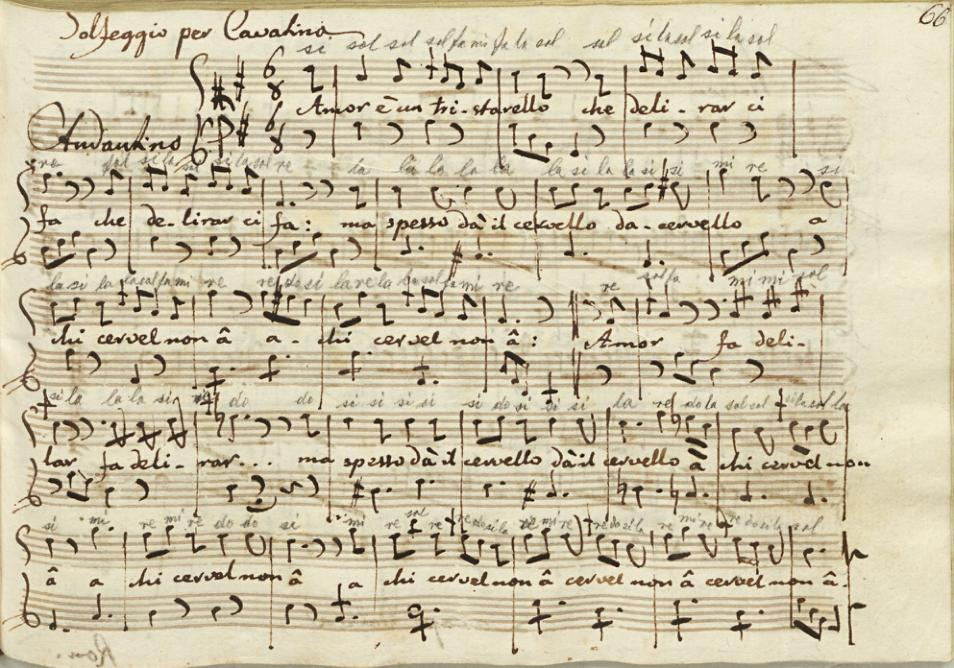 66
Solfeggio per Cavatina
si sol sol sol fa mi fa la sol sol si la sol si la sol
6 8
Amor è un tri-starello che deli-rar ci
Andantino 6 8
re sol si la sol si la sol re la la la la la la si la la si si mi re si
fa che de-lirar ci fa: ma spesso dà il cervello da-cervello a
la si la la sol fa mi re re do si la re la la sol fa mi re re sol fa mi mi sol
chi cervel non â a-chi cervel non â: Amor fa deli-
si la la la si do do si si si si si do si si si la re do la sol sol si la sol la
rar fa deli-rar... ma spesso dà il cervello dà il cervello a chi cervel non
si mi re mi re do do si mi re sol re re do si la re mi re re do si la re mi re re do si la sol
â a chi cervel non â a chi cervel non â cervel non â cervel non â.